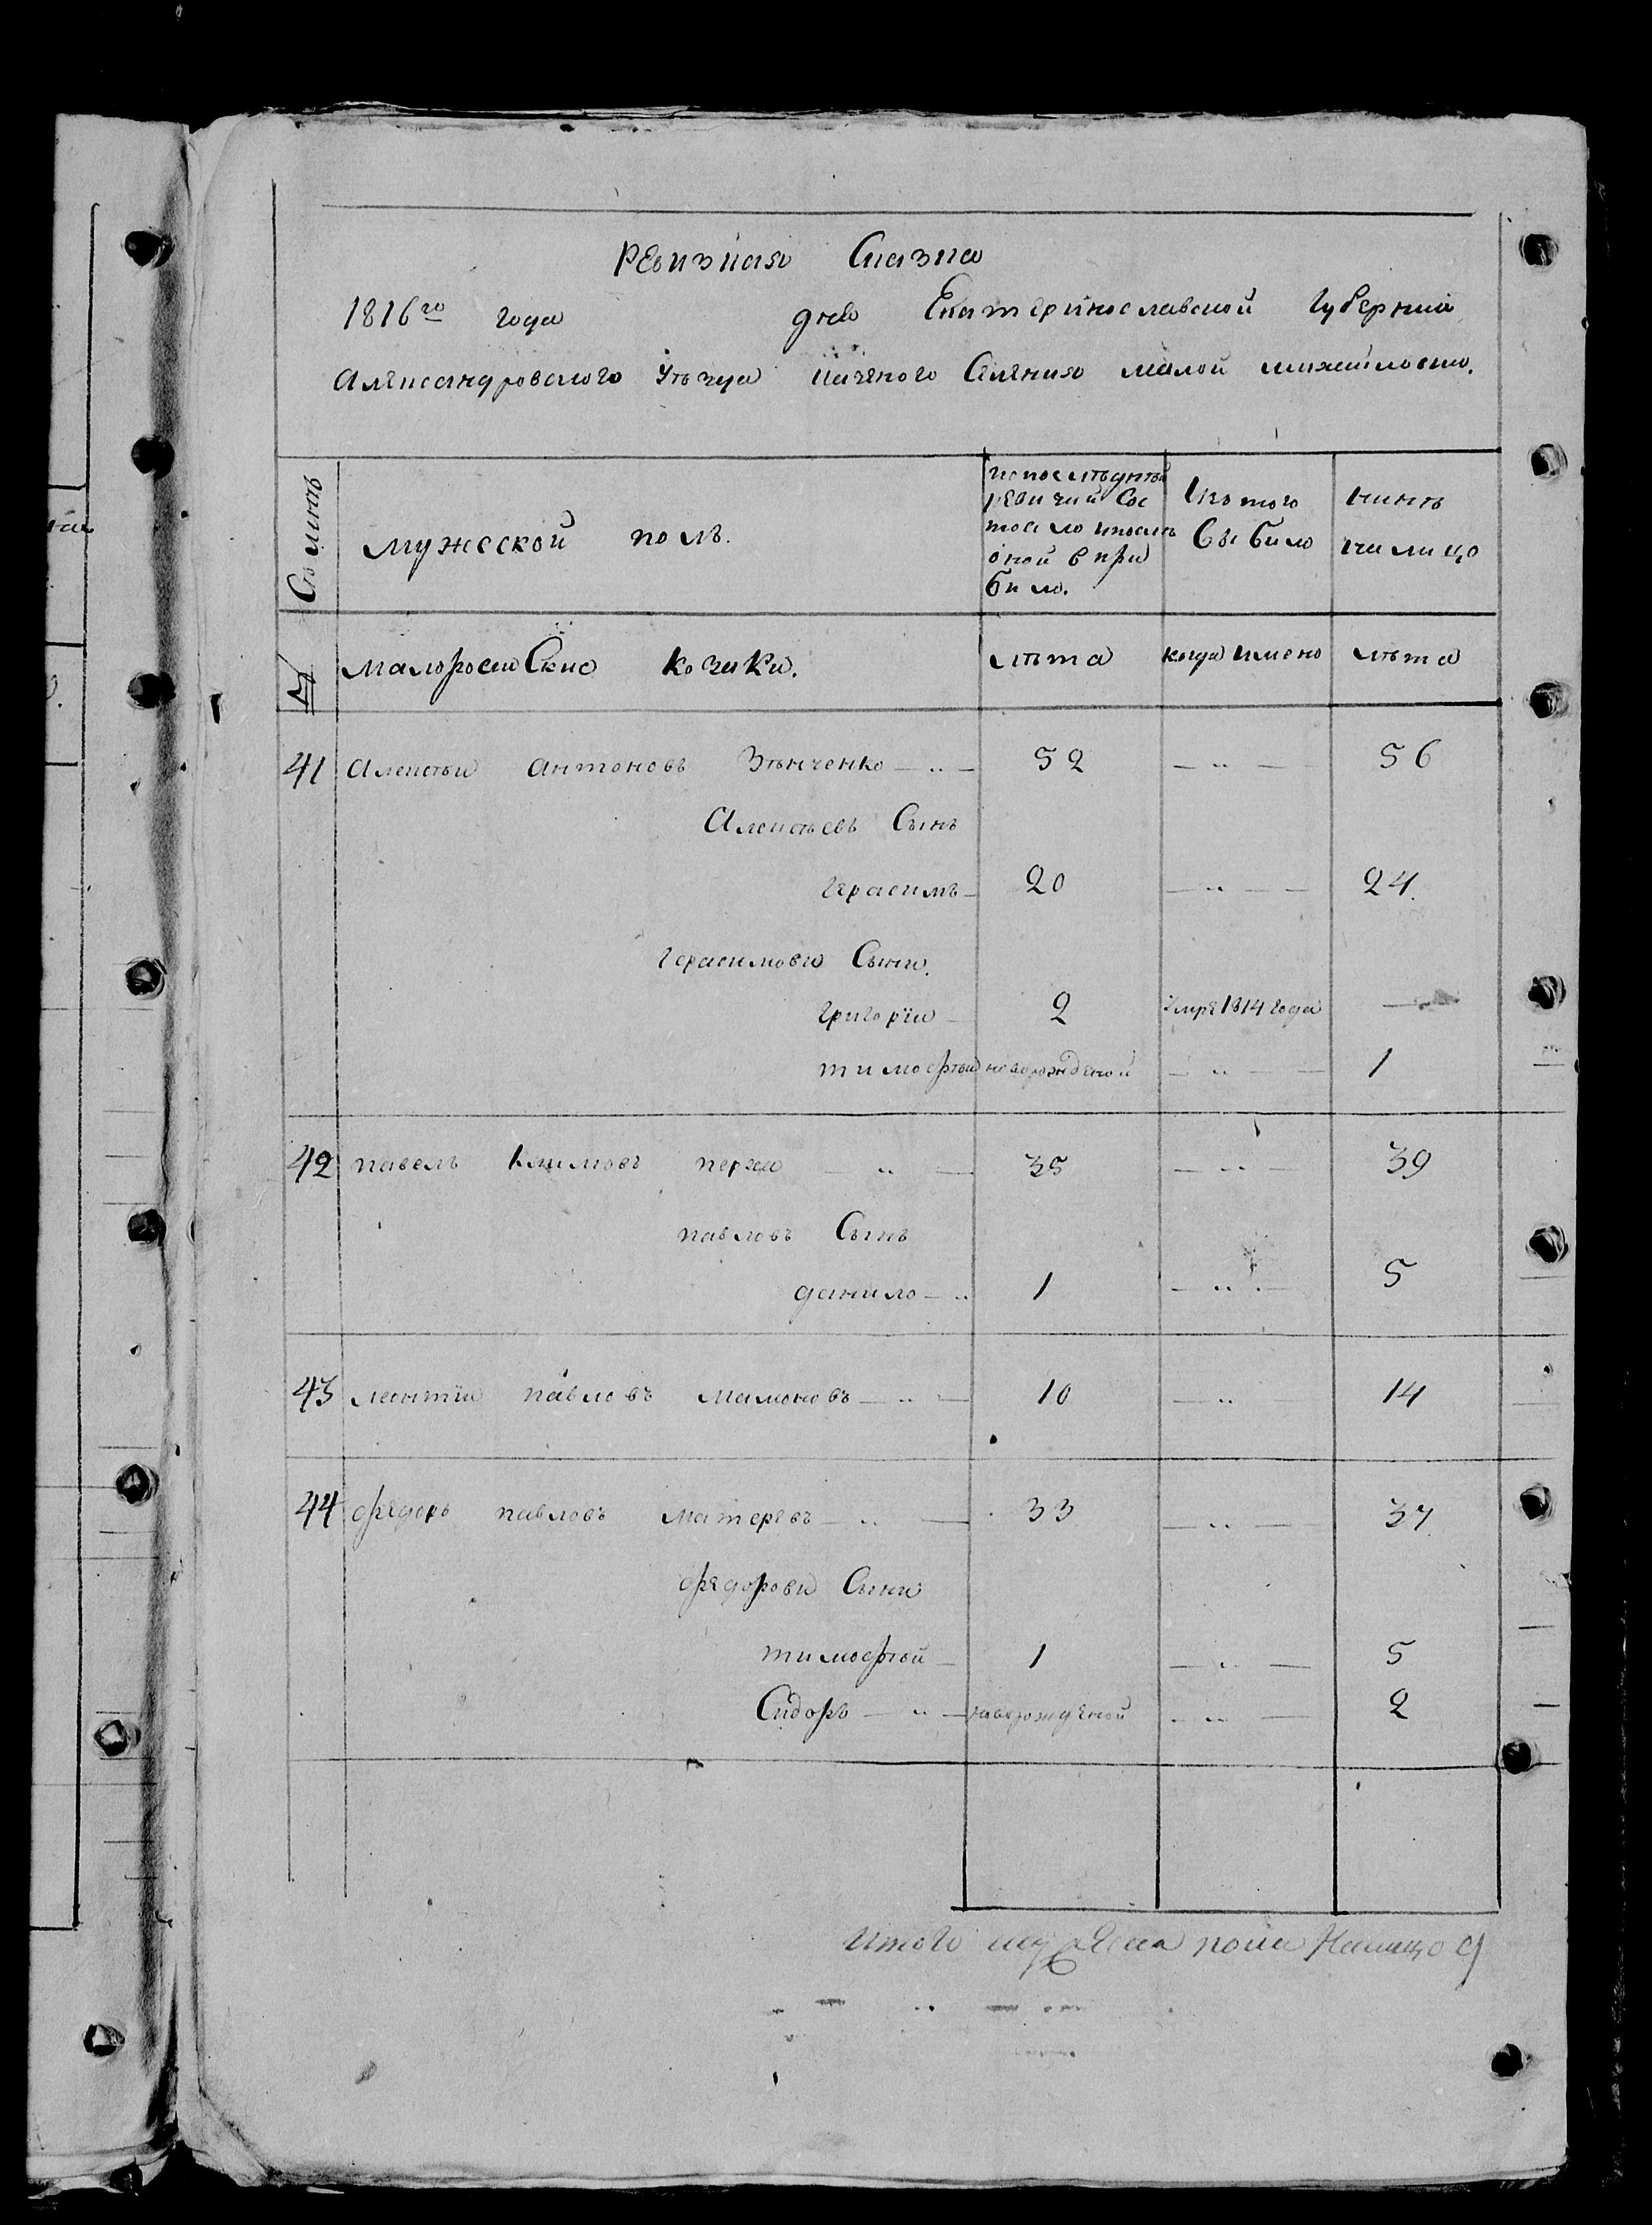 Ревизная Сказка
1816го года дня Екатеринославской Губернии
Александровского Уезда казеного Селения малой михайловки.
Семить
мужеской полъ.
попоследней
ревизий Сос
тоало ипосле
оной впри
било.
Изтого
Выбило
нинѣ
на лицо
№
малоросийские козаки.
лѣта
когда имено
лѣта
41 Алексѣй Антоновъ Зѣнченко 52 56
Алексѣевъ Сынъ
Герасимъ 20 24
Герасимови Сыни
Григорїи 2 умре 1814 года
тимофѣй новорожденой 1
42 павелъ Климовъ 35 39
павловъ Сынъ
данило 1 5
43 леонтїи павловъ мамоновъ 10 14
44 федоръ павловъ 33 37
федорови Сини
тимофѣй 1 5
Сидоръ новорожденой 2
Итого мужеска пола Налицо 9